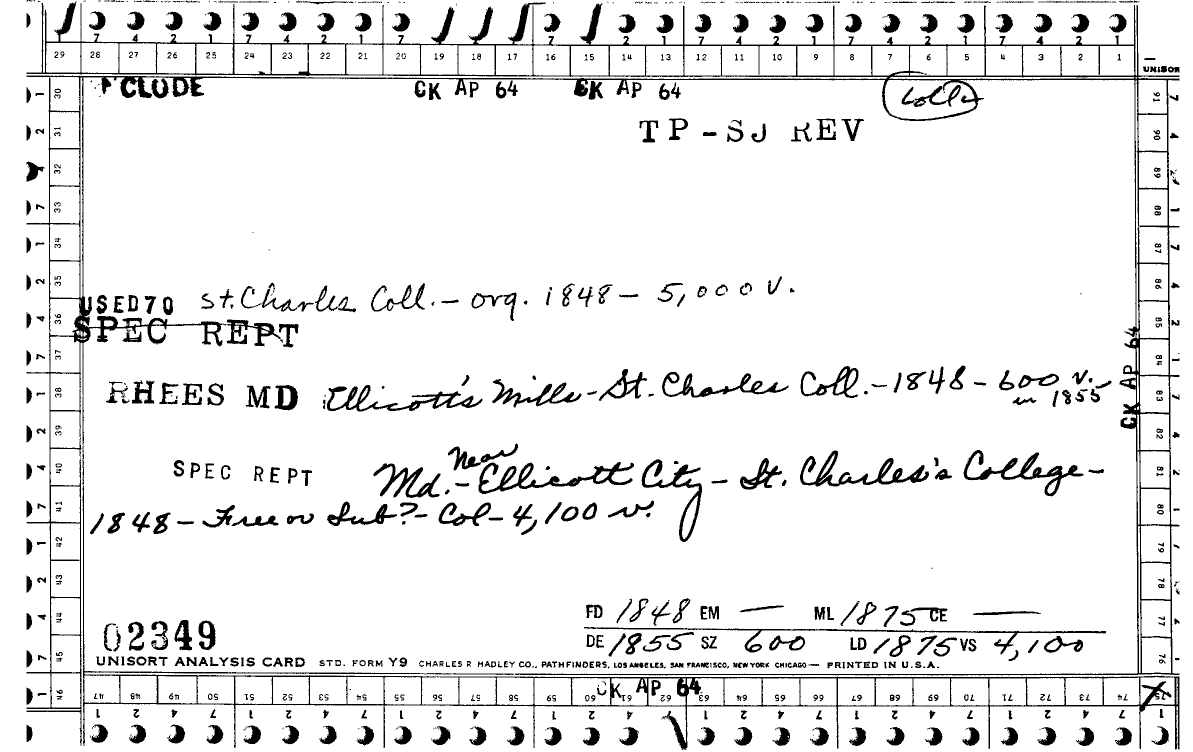 7 4 2 1 7 4 2 1 7 7 2 1 7 4 2 1 7 4 2 1 7 4 2 1
29 28 27 26 25 24 23 22 21 20 19 18 17 16 15 14 13 12 11 10 9 8 7 6 5 4 3 2 1
UNISOR
CLUDE CK AP 64 CK AP 64
TP-SJ REV
USED70 St. Charles Coll. - org. 1848 - 5,000 v.
SPEC REPT
RHEES MD Ellicott's Mills - St. Charles Coll. - 1848 - 600 v.
in 1855
CK AP 64
Near
SPEC REPT Md. - Ellicott City - St. Charles's College -
1848 - Free or Sub? - Col - 4,100 v.
FD 1848 EM — ML 1875 CE —
02349
DE 1855 SZ 600 LD 1875 VS 4,100
UNISORT ANALYSIS CARD STD. FORM Y9 CHARLES R HADLEY CO., PATHFINDERS, LOS ANGELES, SAN FRANCISCO, NEW YORK CHICAGO — PRINTED IN U.S.A.
CK AP 64
30 31 32 33 34 35 36 37 38 39 40 41 42 43 44 45 46
47 48 49 50 51 52 53 54 55 56 57 58 59 60 61 62 63 64 65 66 67 68 69 70 71 72 73 74 75
91 90 89 88 87 86 85 84 83 82 81 80 79 78 77 76